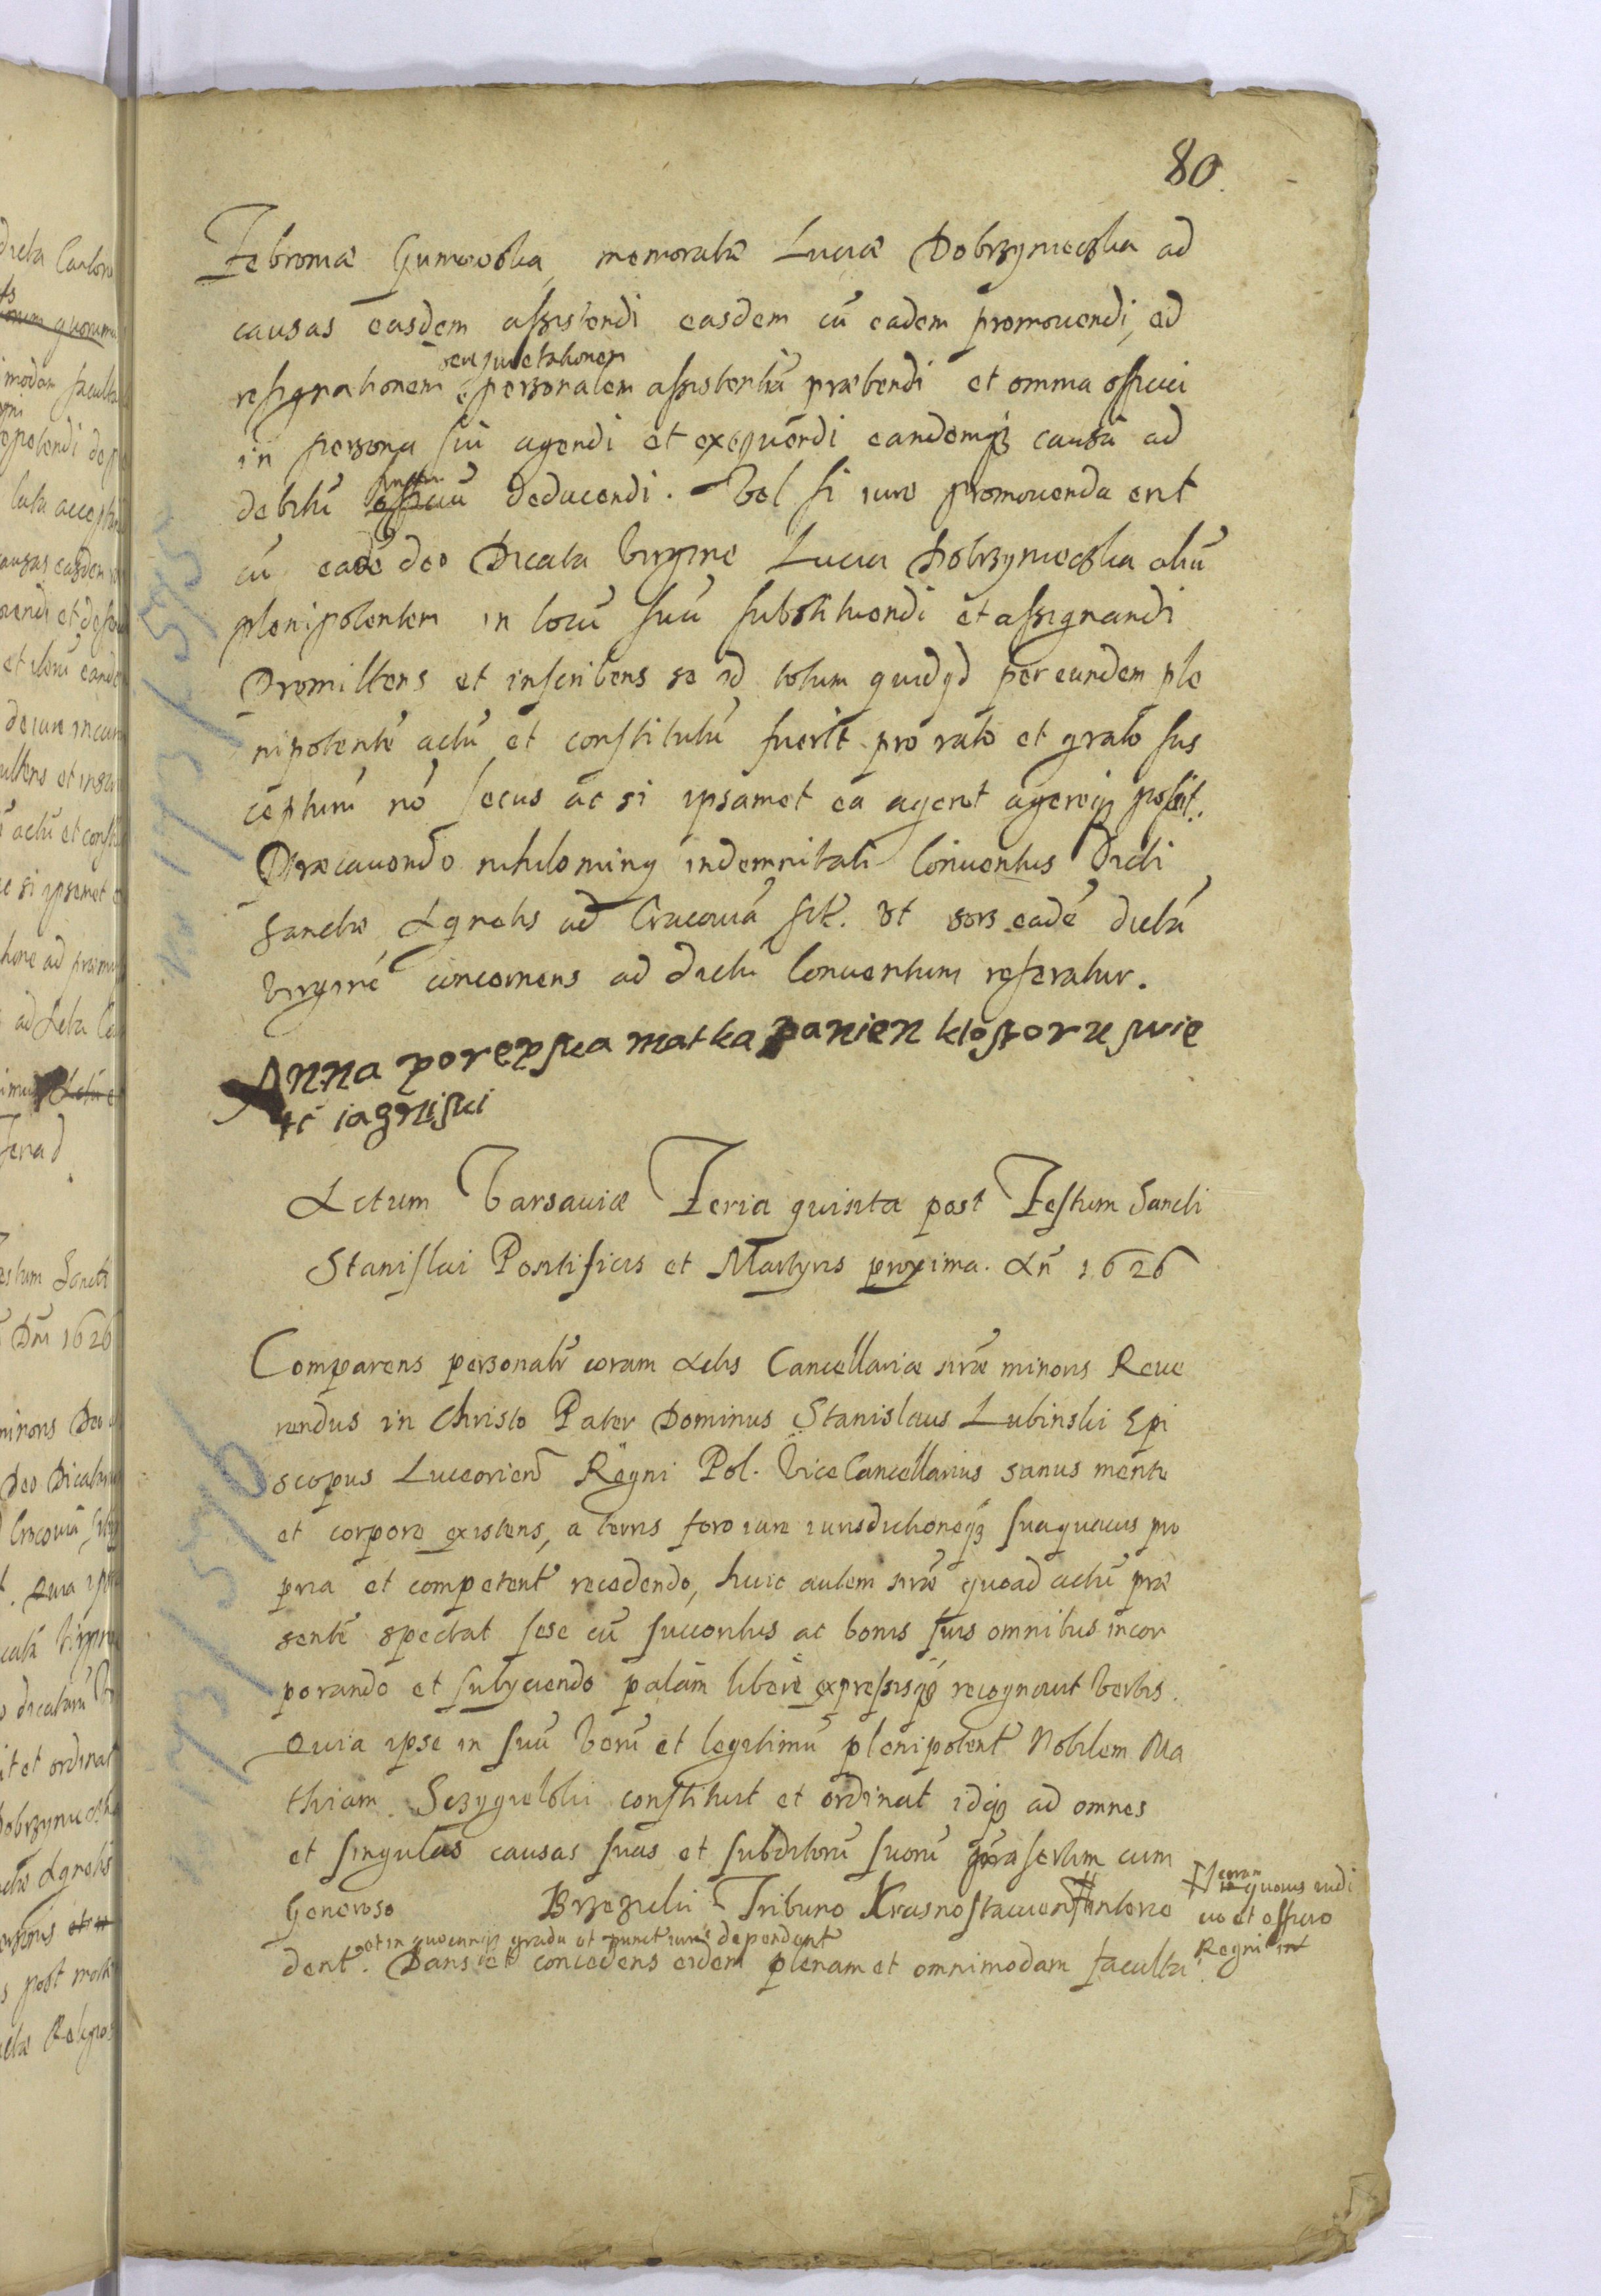 80.
Febroniæ Gumowska, memoratæ Luciæ Dobrzyniecska ad
causas easdem assistendi easdem cū eadem promouendi, ad
seu quietationem
resignationem personalem assistentiā præbendi et omnia officii
in persona sui agendi et exequendi eandemq3 causā ad
debitū deducendi. Vel si iure promouenda erit
cū eadē deo Dicata Virgine Lucia Dobrzyniecska aliū
plenipotentem in locū suū substituendi et assignandi
Promittens et inscribens se id totum quidqd per eundem ple
nipotentē actū et constitutū fuerit pro rato et grato sus
cepturū nō secus ac si ipsamet ea ageret agereq3 posset.
Præcauendo nihilominq indemnitati Conuentus Dicti
Sanctæ Agnetis ad Cracouiā sit. Vt sors eadē dictā
Virginē concernens ad dictū Conuentum referatur.
Anna porępska matka panien klosztoru swię
tć iagniski
Actum Varsauiæ Feria quinta post Festum Sancti
Stanislai Pontificis et Martyris proxima. An̄ 1626
Comparens personalr̄ coram Actis Cancellariæ nr̄æ minoris Reue
rendus in Christo Pater Dominus Stanislaus Lubinski Epi
scopus Luceorien̄ Regni Pol. Vice Cancellarius sanus mente
et corpore existens, a terris foro iure iurisdictioneq3 sua quauis pro
pria et competent̄ recedendo, huic autem nr̄æ quoad actū præ
sentē spectat sese cū successorībus ac bonis suis omnibus incor
porando et subyciendo palam libere expressisq3 recognouit Verbis.
Quia ipse in suū Verū et legitimū plenipotent̄ Nobilem Ma
thiam Sczygielski constituit et ordinat idq3 ad omnes
et singulas causas suas et subditorū suorū præsertim cum
Generoso Brzezicki Tribuno Krasnostauien # intenc
# coram quouis iudi
cio et officio
Regni
et in quocunq3 gradu et punct̄ iuris dependent̄
dent. Dans et concedens eidem plenam et omnimodam faculta